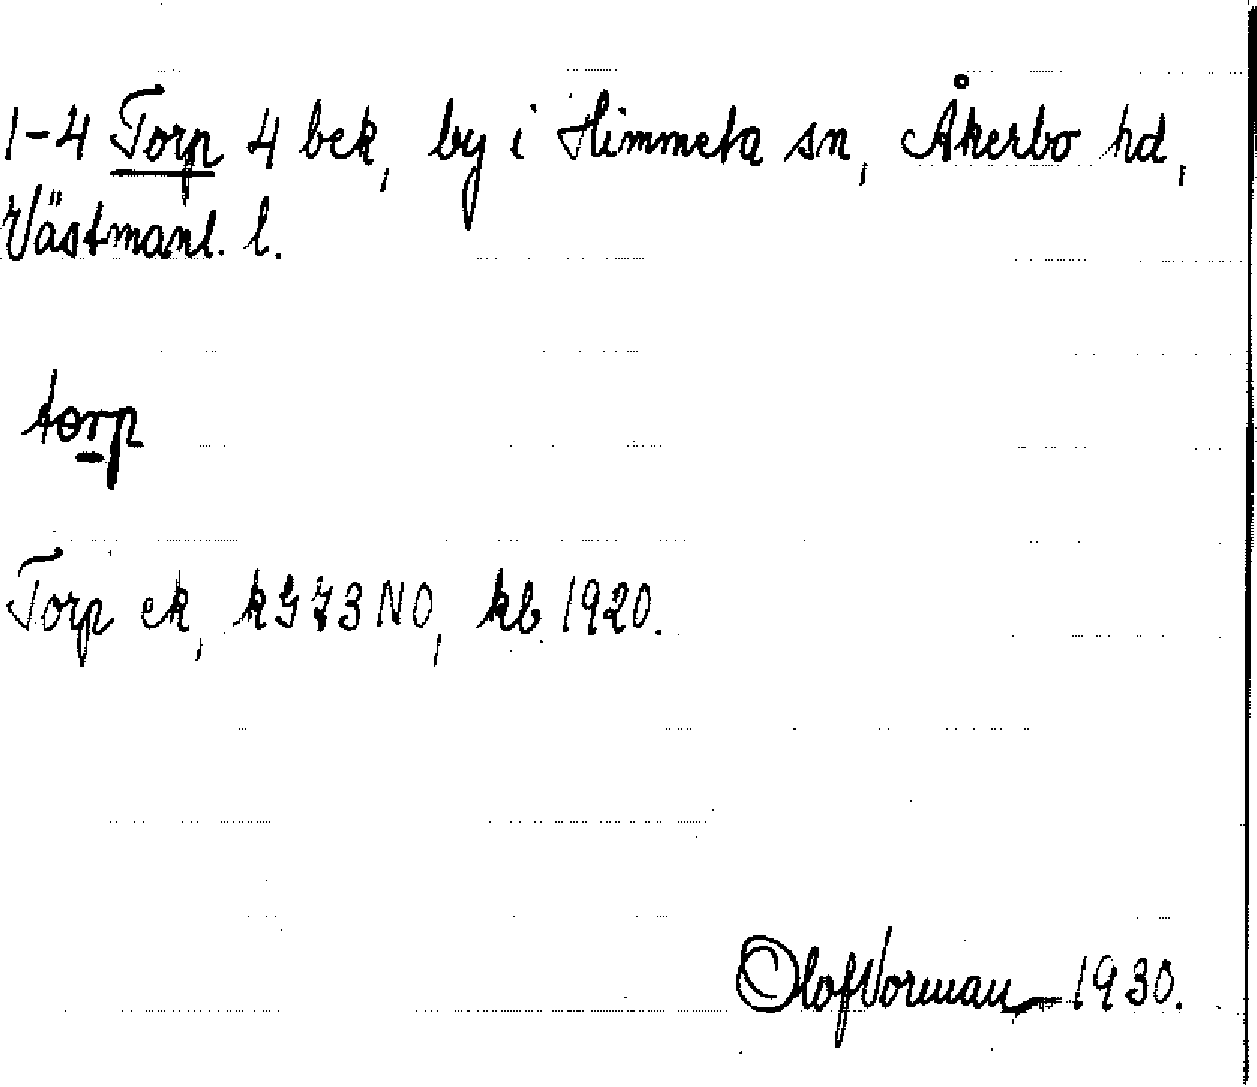 1-4 Torp 4 bek, by i Himmeta sn, Åkerbo hd,
Västmanl. l.
tɵrp
Torp ek, kG73NO, kb 1920.
Olof Vorman 1930.